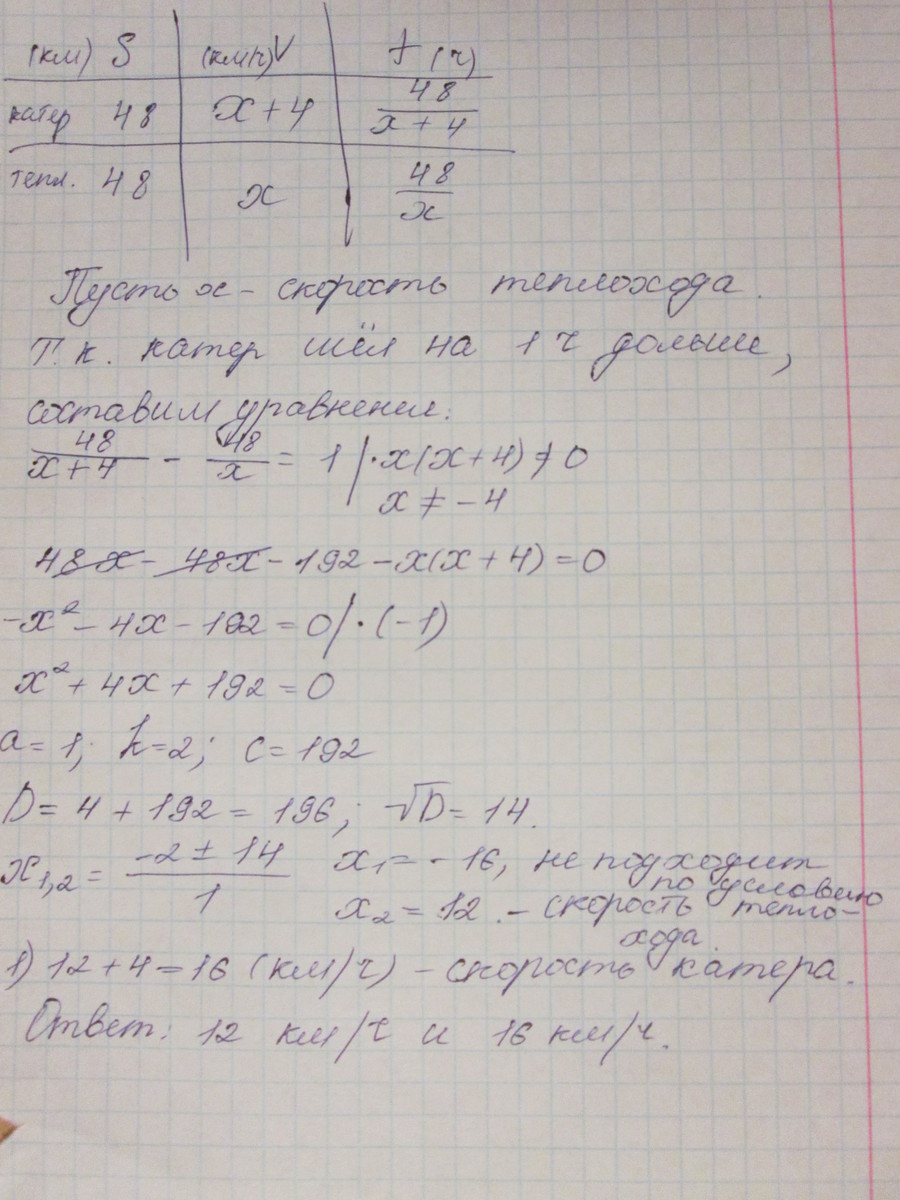 (км) S (км/ч) V t (ч)
катер 48 x + 4 48/(x + 4)
тепл. 48 x 48/x
Пусть x - скорость теплохода.
Т.к. катер шёл на 1 ч дольше,
составим уравнение:
48/(x + 4) - 48/x = 1 | · x(x + 4) ≠ 0
x ≠ - 4
48x - 48x - 192 - x(x + 4) = 0
-x² - 4x - 192 = 0 | · (-1)
x² + 4x + 192 = 0
a = 1; k = 2; c = 192
D = 4 + 192 = 196; √D = 14.
x₁,₂ = (-2 ± 14)/1 x₁ = - 16, не подходит
по условию
x₂ = 12. - скорость тепло-
хода.
1) 12 + 4 = 16 (км/ч) - скорость катера.
Ответ: 12 км/ч и 16 км/ч.